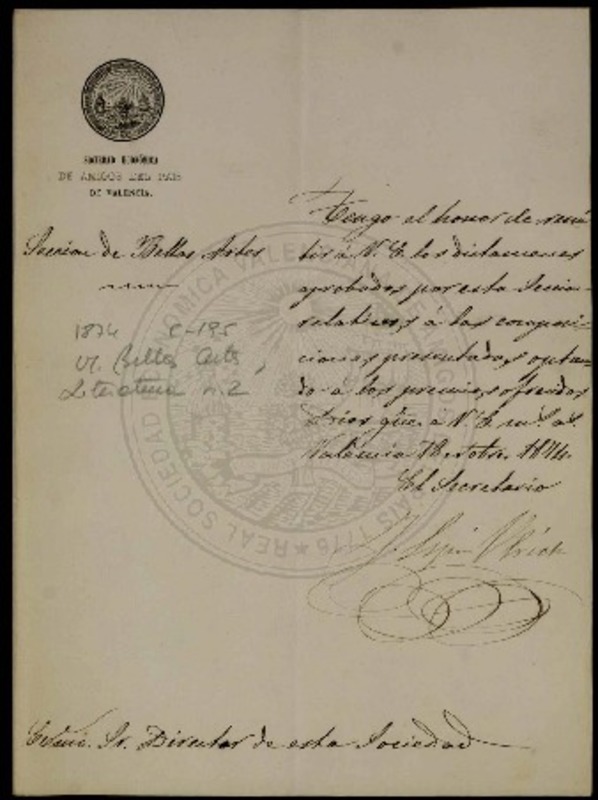 SOCIEDAD ECONÓMICA
DE AMIGOS DEL PAIS
DE VALENCIA.
Seccion de Bellas Artes
1874 C-195
VI. Bellas Artes,
Literatura n. 2
Tengo el honor de remi
tir á V. E. los dictamenes
aprobados por esta Seccion
relativos á las composi-
ciones presentadas optan
do á los premios ofrecidos
Dios gue. a V. E. m.s a.s
Valencia 1874
El Secretario
Excmo. Sr. Director de esta Sociedad
REAL SOCIEDAD ECONOMICA VALENCIANA DE AMIGOS DEL PAIS 1776